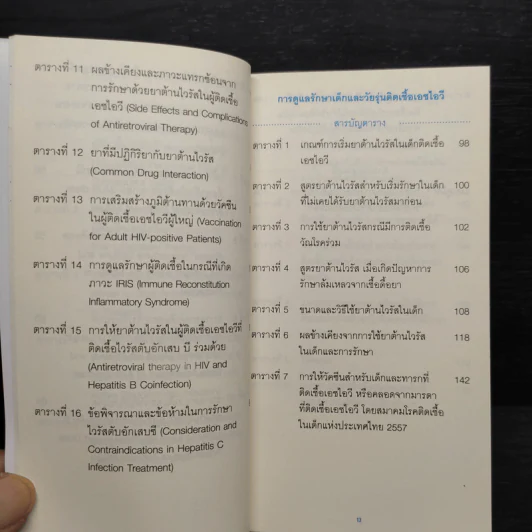 ตารางที่ 11 ผลข้างเคียงและภาวะแทรกซ้อนจาก
การรักษาด้วยยาต้านไวรัสในผู้ติดเชื้อ
เอชไอวี (Side Effects and Complications
of Antiretroviral Therapy)
ตารางที่ 12 ยาที่มีปฏิกิริยากับยาต้านไวรัส
(Common Drug Interaction)
ตารางที่ 13 การเสริมสร้างภูมิต้านทานด้วยวัคซีน
ในผู้ติดเชื้อเอชไอวีผู้ใหญ่ (Vaccination
for Adult HIV-positive Patients)
ตารางที่ 14 การดูแลรักษาผู้ติดเชื้อในกรณีที่เกิด
ภาวะ IRIS (Immune Reconstitution
Inflammatory Syndrome)
ตารางที่ 15 การให้ยาต้านไวรัสในผู้ติดเชื้อเอชไอวีที่
ติดเชื้อไวรัสตับอักเสบ บี ร่วมด้วย
(Antiretroviral therapy in HIV and
Hepatitis B Coinfection)
ตารางที่ 16 ข้อพิจารณาและข้อห้ามในการรักษา
ไวรัสตับอักเสบซี (Consideration and
Contraindications in Hepatitis C
Infection Treatment)
การดูแลรักษาเด็กและวัยรุ่นติดเชื้อเอชไอวี
สารบัญตาราง
ตารางที่ 1 เกณฑ์การเริ่มยาต้านไวรัสในเด็กติดเชื้อ 98
เอชไอวี
ตารางที่ 2 สูตรยาต้านไวรัสสำหรับเริ่มรักษาในเด็ก 100
ที่ไม่เคยได้รับยาต้านไวรัสมาก่อน
ตารางที่ 3 การใช้ยาต้านไวรัสกรณีมีการติดเชื้อ 102
วัณโรคร่วม
ตารางที่ 4 สูตรยาต้านไวรัส เมื่อเกิดปัญหาการ 106
รักษาล้มเหลวจากเชื้อดื้อยา
ตารางที่ 5 ขนาดและวิธีใช้ยาต้านไวรัสในเด็ก 108
ตารางที่ 6 ผลข้างเคียงจากการใช้ยาต้านไวรัส 118
ในเด็กและการรักษา
ตารางที่ 7 การให้วัคซีนสำหรับเด็กและทารกที่ 142
ติดเชื้อเอชไอวี หรือคลอดจากมารดา
ที่ติดเชื้อเอชไอวี โดยสมาคมโรคติดเชื้อ
ในเด็กแห่งประเทศไทย 2557